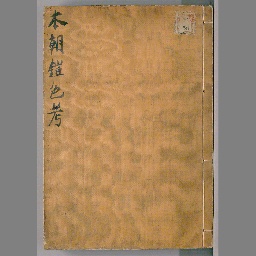 本朝鎧色考